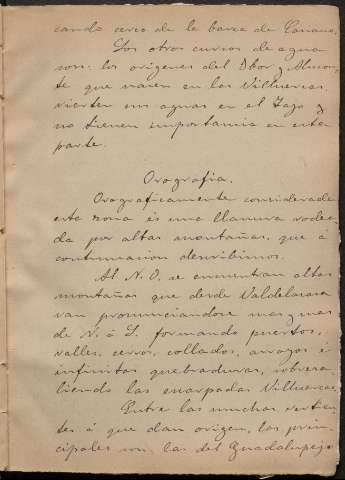 cando cerca de la barca de
Los otros cursos de agua
son: los origenes del Ibor y Almon-
te que nacen en las Villuercas,
vierten sus aguas en el Tajo y
no tienen importancia en esta
parte.
Orografía.
Orograficamente considerada
esta zona és una llanura rodea-
da por altas montañas, que á
continuacion describimos.
Al N. O. se encuentran altas
montañas que desde Valdelacasa
van pronunciandose mas y mas
de N. á S. formando puertos,
valles, cerros, collados, arroyos é
infinitas quebraduras, sobresa-
liendo las escarpadas Villuercas.
Entre las muchas vertien-
tes á que dan origen, las prin-
cipales son las del Guadalupejo